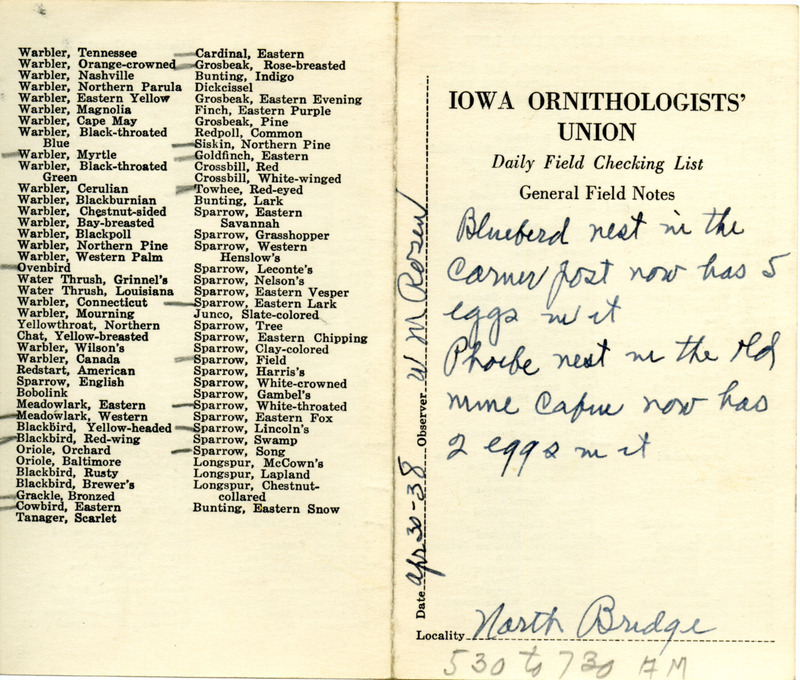 Warbler, Tennessee
Warbler, Orange-crowned
Warbler, Nashville
Warbler, Northern Parula
Warbler, Eastern Yellow
Warbler, Magnolia
Warbler, Cape May
Warbler, Black-throated
Blue
Warbler, Myrtle
Warbler, Black-throated
Green
Warbler, Cerulian
Warbler, Blackburnian
Warbler, Chestnut-sided
Warbler, Bay-breasted
Warbler, Blackpoll
Warbler, Northern Pine
Warbler, Western Palm
Ovenbird
Water Thrush, Grinnel's
Water Thrush, Louisiana
Warbler, Connecticut
Warbler, Mourning
Yellowthroat, Northern
Chat, Yellow-breasted
Warbler, Wilson's
Warbler, Canada
Redstart, American
Sparrow, English
Bobolink
Meadowlark, Eastern
Meadowlark, Western
Blackbird, Yellow-headed
Blackbird, Red-wing
Oriole, Orchard
Oriole, Baltimore
Blackbird, Rusty
Blackbird, Brewer's
Grackle, Bronzed
Cowbird, Eastern
Tanager, Scarlet
Cardinal, Eastern
Grosbeak, Rose-breasted
Bunting, Indigo
Dickcissel
Grosbeak, Eastern Evening
Finch, Eastern Purple
Grosbeak, Pine
Redpoll, Common
Siskin, Northern Pine
Goldfinch, Eastern
Crossbill, Red
Crossbill, White-winged
Towhee, Red-eyed
Bunting, Lark
Sparrow, Eastern
Savannah
Sparrow, Grasshopper
Sparrow, Western
Henslow's
Sparrow, Leconte's
Sparrow, Nelson's
Sparrow, Eastern Vesper
Sparrow, Eastern Lark
Junco, Slate-colored
Sparrow, Tree
Sparrow, Eastern Chipping
Sparrow, Clay-colored
Sparrow, Field
Sparrow, Harris's
Sparrow, White-crowned
Sparrow, Gambel's
Sparrow, White-throated
Sparrow, Eastern Fox
Sparrow, Lincoln's
Sparrow, Swamp
Sparrow, Song
Longspur, McCown's
Longspur, Lapland
Longspur, Chestnut-
collared
Bunting, Eastern Snow
Date Apr 30-38 Observer W M Rosen
IOWA ORNITHOLOGISTS'
UNION
Daily Field Checking List
General Field Notes
Blueberd nest in the
corner post now has 5
eggs in it
Phoebe nest in the old
mine now has
2 eggs in it
Locality North Bridge
530 to 730 AM